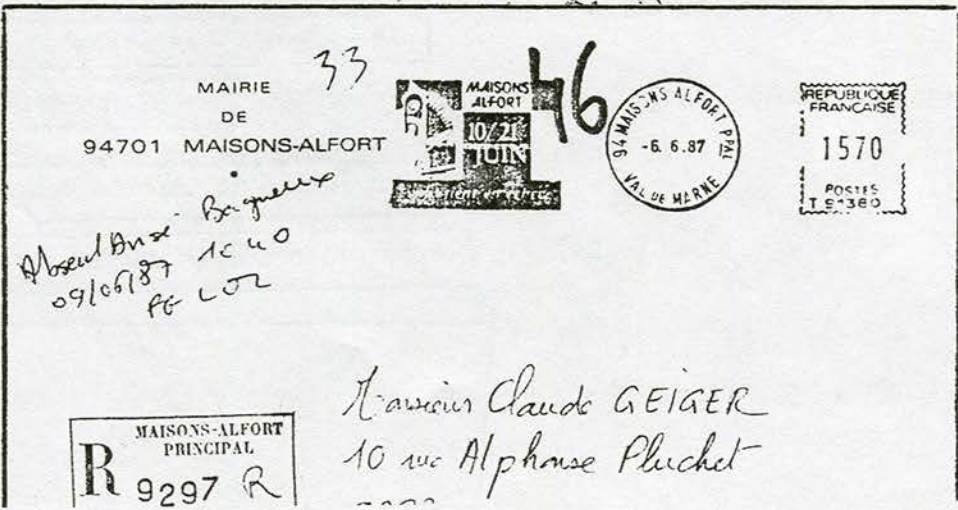 33
MAIRIE
DE
94701 MAISONS-ALFORT
MAISONS
ALFORT
10/21
JUIN
46
94 MAISONS ALFORT PPAL
-6. 6.87
VAL DE MARNE
REPUBLIQUE
FRANCAISE
1570
POSTES
Absent Avisé - Bagneux
09/06/87 10 40
MAISONS-ALFORT
PRINCIPAL
R 9297 R
Monsieur Claude GEIGER
10 rue Alphonse Pluchet